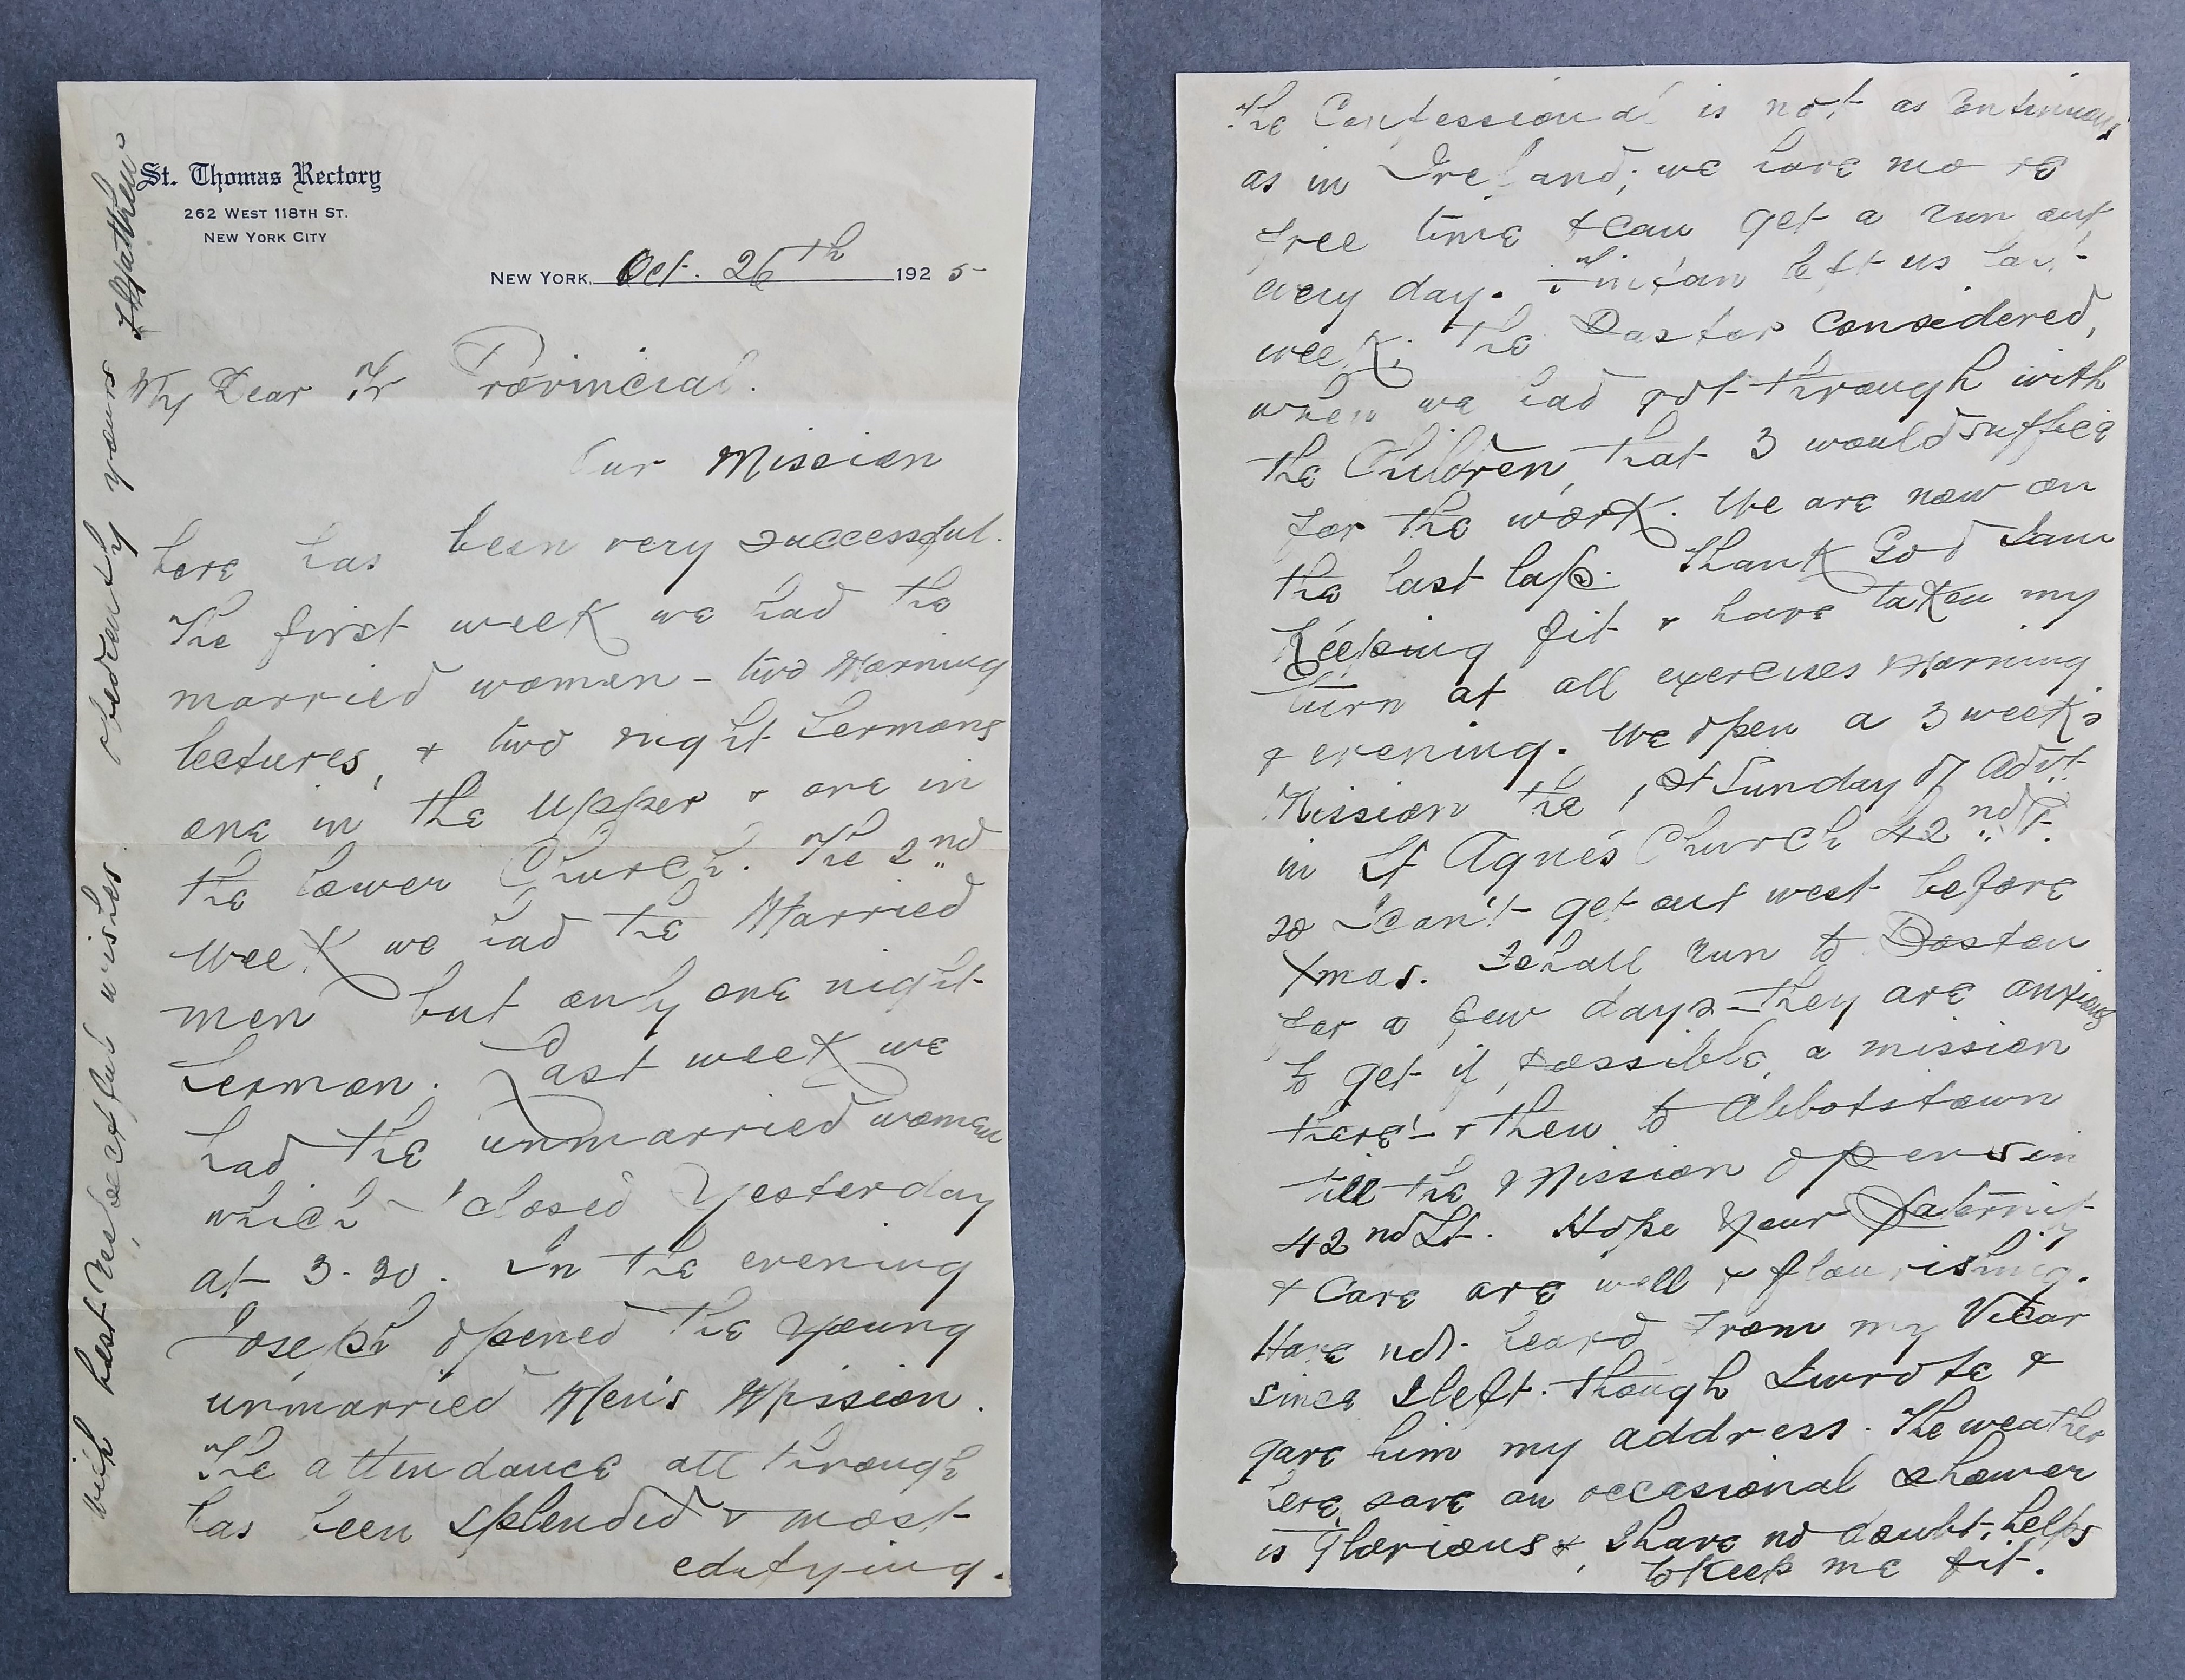 St. Thomas Rectory
262 West 118th St.
New York City
New York, Oct. 26th 1925
My Dear Fr Provincial.
Our Mission
here has been very successful.
The first week we had the
married women - two Morning
lectures, & two night Sermons
one in the Upper & one in
the lower Church. The 2nd
Week we had the Married
men but only one night
Sermon. Last week we
had the unmarried women
which I closed Yesterday
at 3-30. In the evening
Joseph opened the Young
unmarried Men's Mission.
The attendance all through
has been splendid & most
edifying.
The Confessional is not as Continuous
as in Ireland; we have more
free time & can get a run out
every day. Fintan left us last
week. The Pastor Considered,
when we had got through with
the Children, that 3 would suffice
for the work. We are now on
the last lap. Thank God I am
Keeping fit & have taken my
turn at all exercises Morning
& evening. We open a 3 week's
Mission the 1st Sunday of Advt.
in St Agnes Church 42nd St.
so I can't get out west before
Xmas. I shall run to Boston
for a few days - they are anxious
to get if possible, a mission
there! - & then to Abbotstown
till the Mission opens in
42nd St. Hope Your Paternity
& Care are well & flourishing.
Have not heard from my Vicar
since I left. Though I wrote &
gave him my address. The weather
here, save an occasional shower
is Glorious & I have no doubt, helps
to Keep me fit.
With best Respectful wishes. Obediently yours
F Matthew